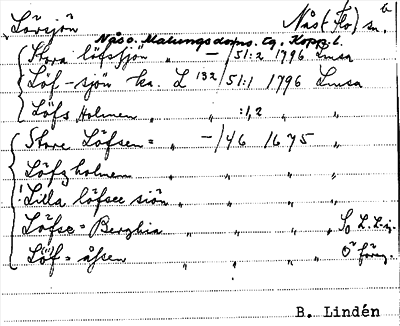 Lövsjön Nås (Flo) sn. b
Nås o. Malungs doms. tg. Kopp. l.
Stora löfssjön " — /51:2 1796 Lmsa
Löf-sjön ka. L 132/51:1 1796 Lmsa
Löfs Holmen " " :1,2 " "
Store Löfsen = " —/46 1675 "
Löfzholmen " " " " "
Lilla löfsee siön " " " "
Löfse = Bergbia " " " " So L.L-ij.
Löf = åhsen " " " " Ö förg.
B. Lindén